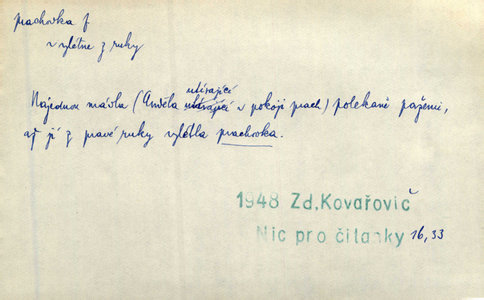 prachovka f
vylétne z ruky
utírající
Najednou mávla (Anděla utírající v pokoji prach) polekaně pažemi,
až jí z pravé ruky vylétla prachovka.
1948 Zd. Kovařovič
Nic pro čítanky 16, 33